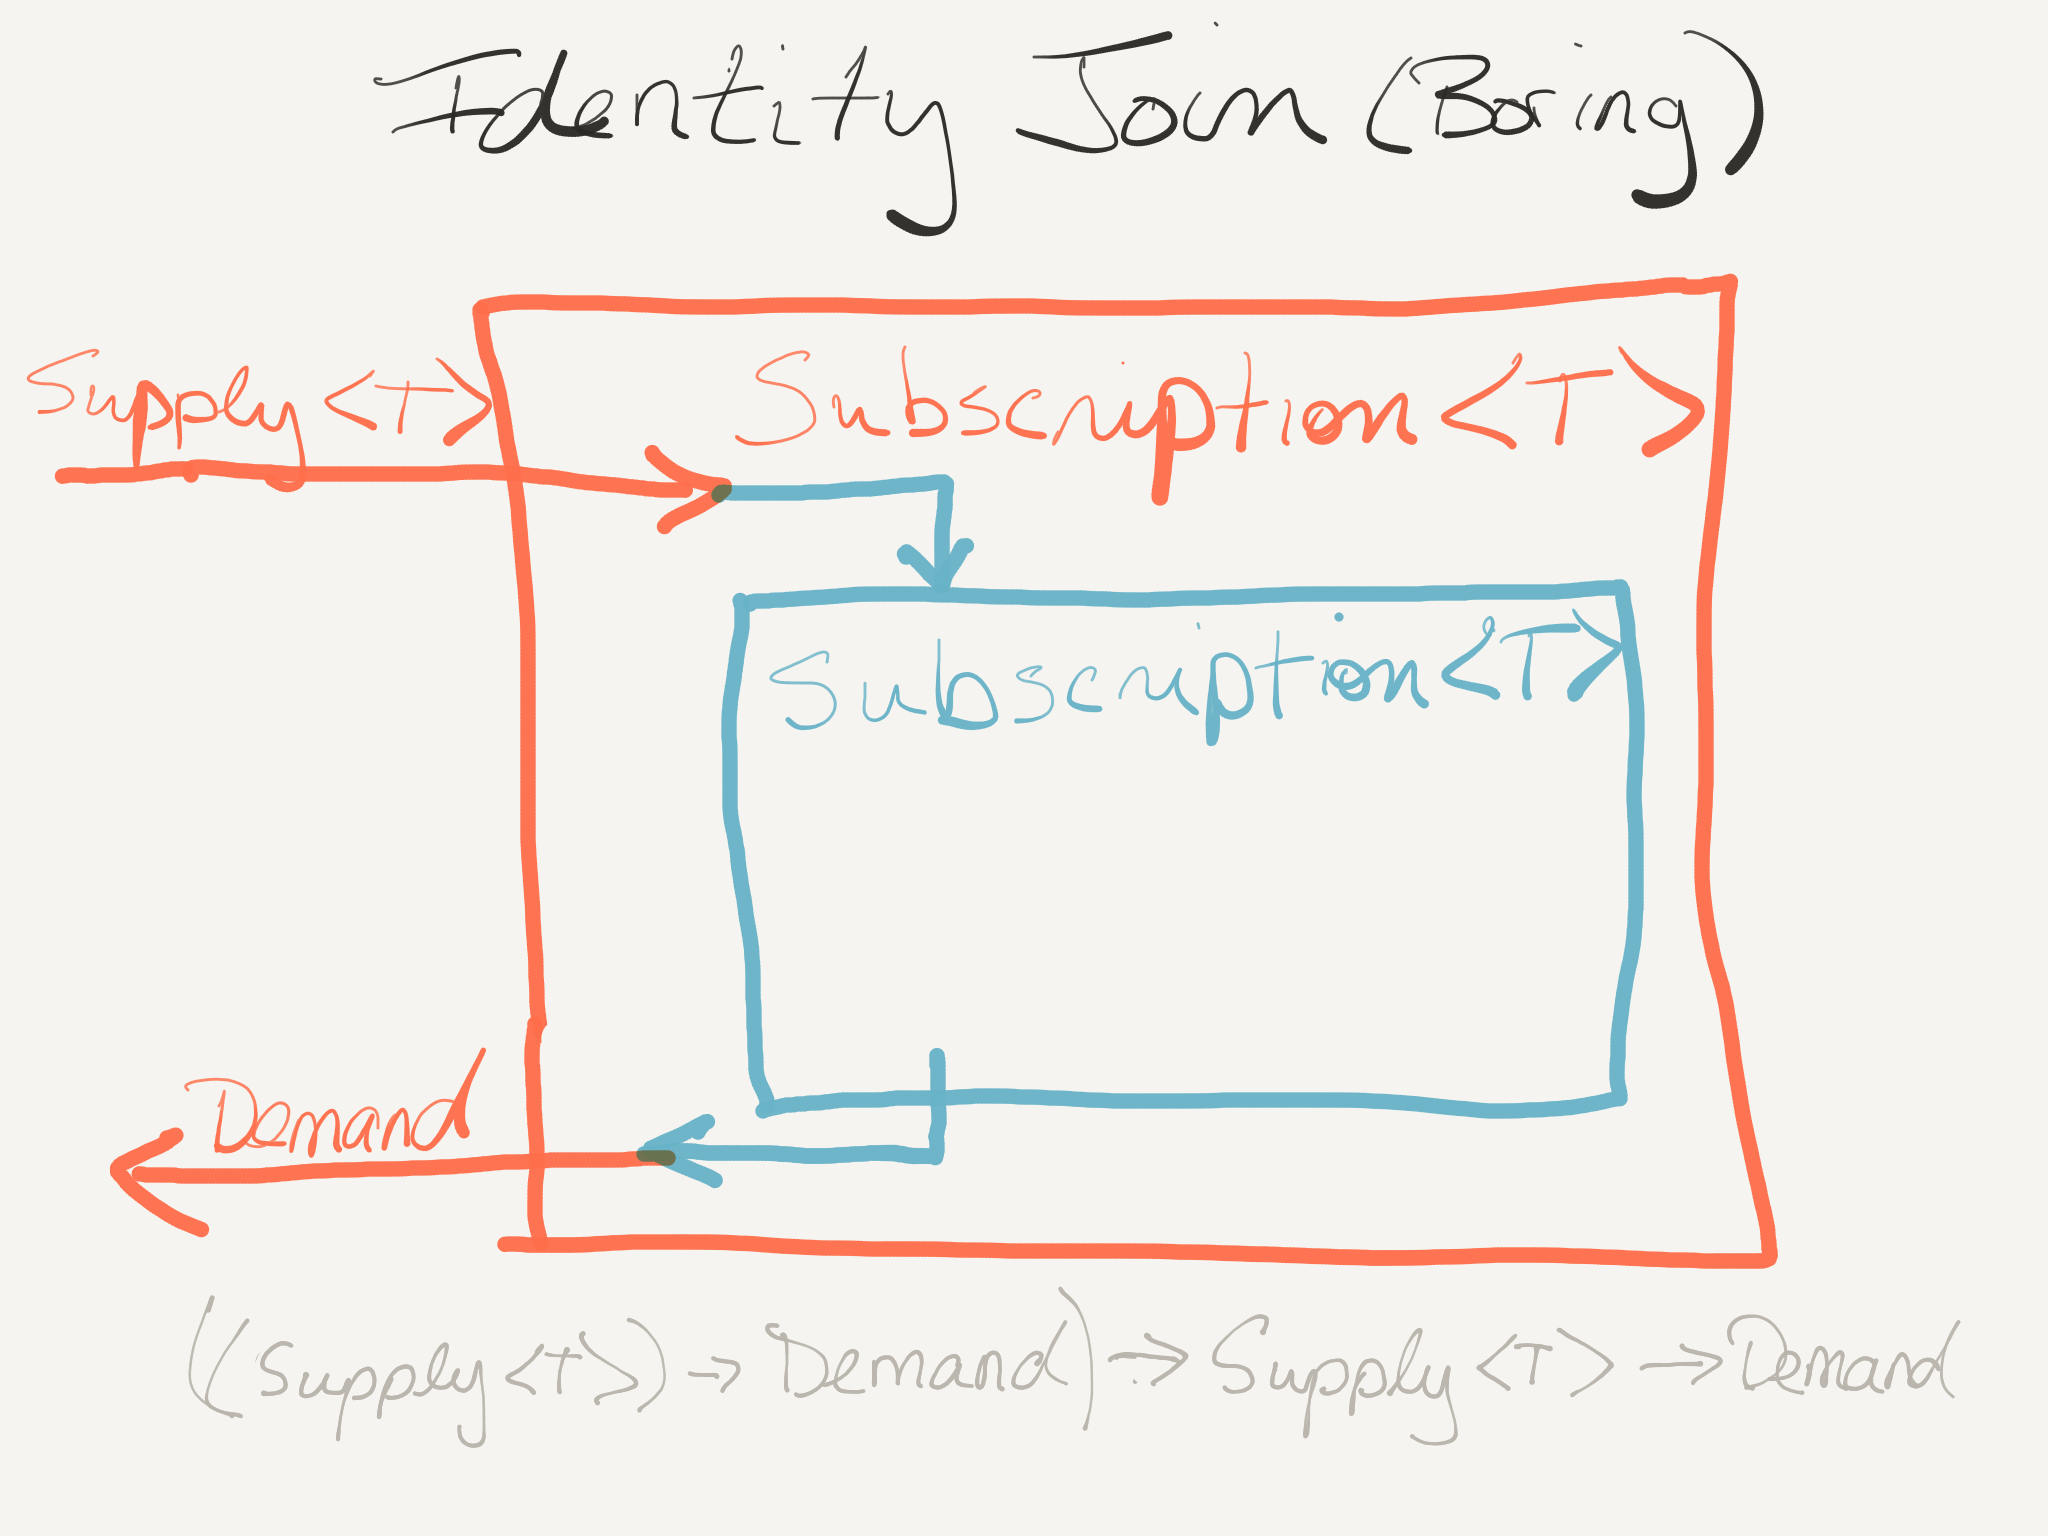 Identity Join (Boring)
Supply<T>
Subscription<T>
Subscription<T>
Demand
((Supply<T>) -> Demand) -> Supply<T> -> Demand